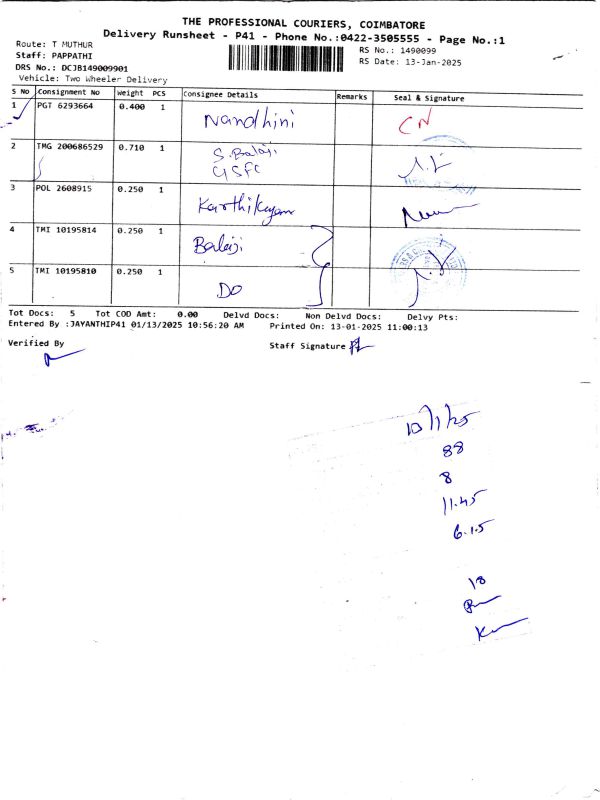 THE PROFESSIONAL COURIERS, COIMBATORE
Delivery Runsheet - P41 - Phone No.:0422-3505555 - Page No.:1
Route: T MUTHUR
RS No.: 1490099
Staff: PAPPATHI
RS Date: 13-Jan-2025
DRS No.: DCJB149009901
Vehicle: Two Wheeler Delivery
S No Consignment No Weight PCS Consignee Details Remarks Seal & Signature
1 PGT 6293664 0.400 1 Nandhini CN
2 TMG 200686529 0.710 1 S.Balaji
GSFC
3 POL 2608915 0.250 1 Karthikeyan
4 TMI 10195814 0.250 1 Balaji
5 TMI 10195810 0.250 1 DO
Tot Docs: 5 Tot COD Amt: 0.00 Delvd Docs: Non Delvd Docs: Delvy Pts:
Entered By :JAYANTHIP41 01/13/2025 10:56:20 AM Printed On: 13-01-2025 11:00:13
Verified By
Staff Signature
10/1/25
88
8
11.45
6.15
18